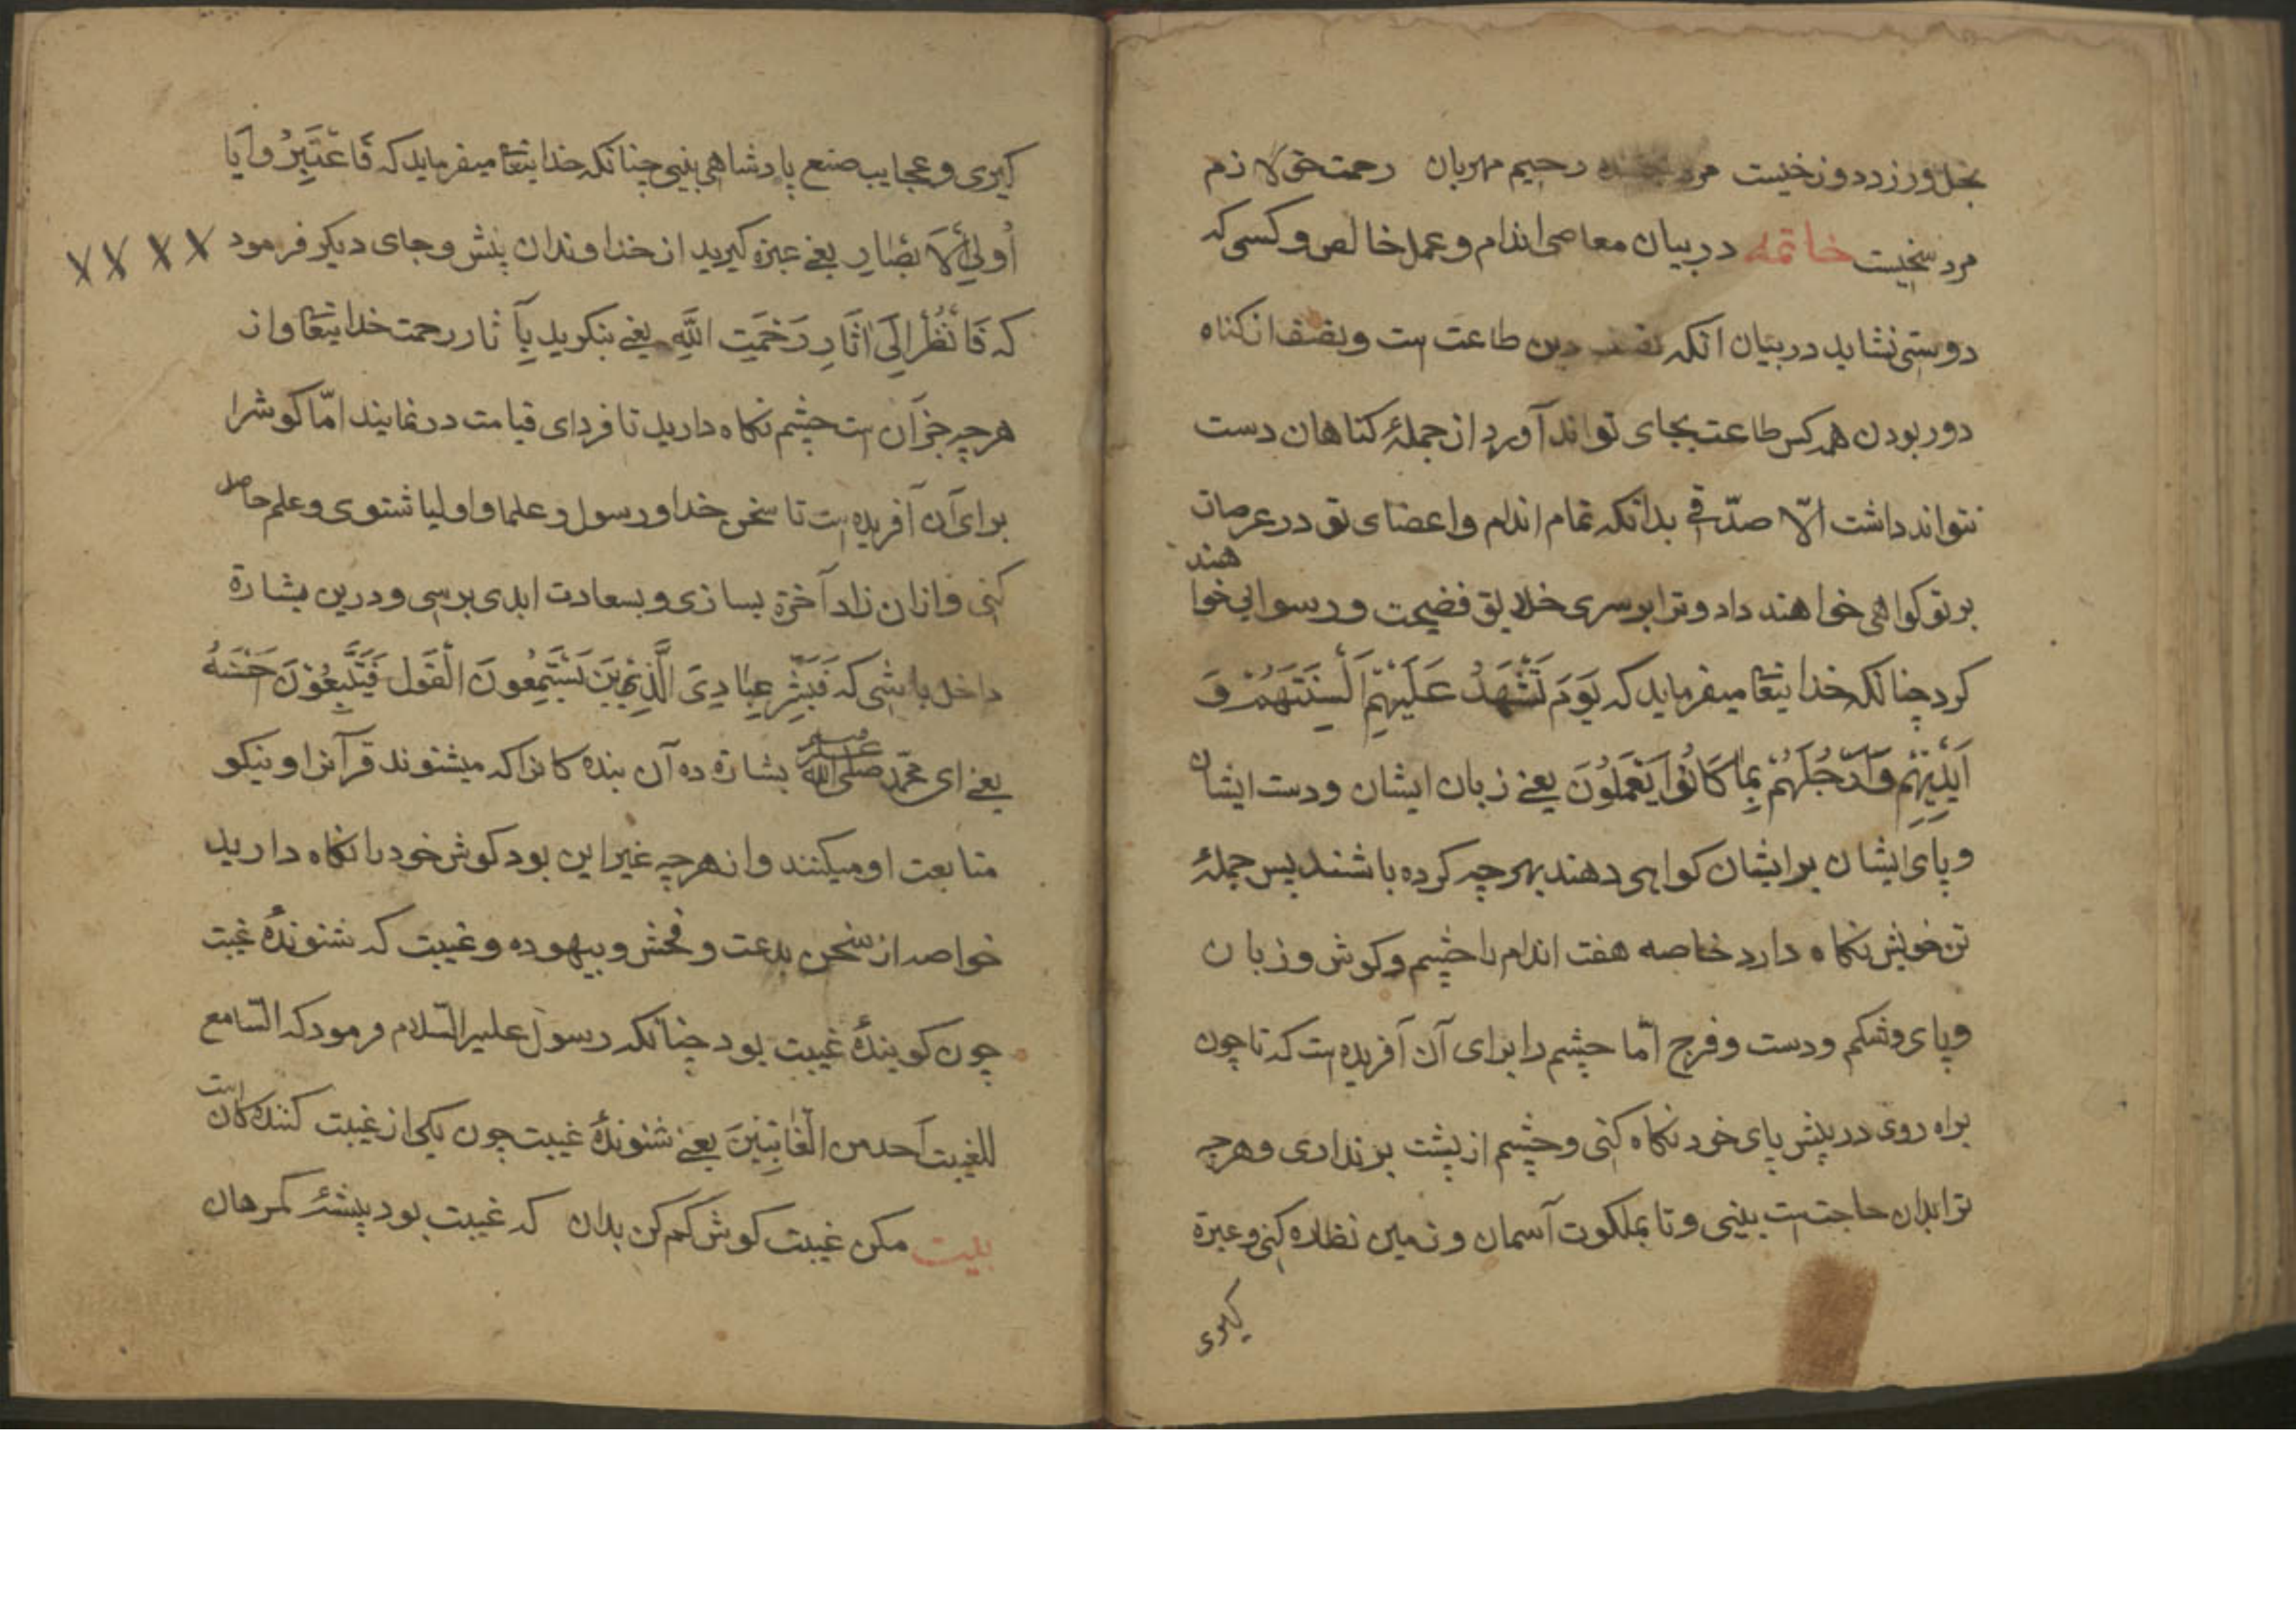 بخل ورزد دوزخیست مرد بخشنده رحیم مهربان رحمت حق لازم
مرد سخیست خاتمه در بیان معاصی اندام و عمل خالص و کسی که
دوستی نشاید در بیان آنکه نصف دین طاعت است و نصف از کناه
دور بودن همه کس طاعت بجای تواند آورد از جملهٔ کناهان دست
نتواند داشت الّا صدّقی بدانکه تمام اندام و اعضای تو در عرصات
بر تو کواهی خواهند داد و ترا بر سری خلایق فضیحت و رسوایی خوا هند
کرد چنانکه خدایتعا میفرماید که یَوَمَ تَشْهَدُ عَلَیْهِمْ اَلْسِنَتَهُمْ وَ
اَیْدِیْهِمْ وَاَرْجُلَهُمْ بِمَا کَانُوْا یَعْمَلُوْنَ یعنی زبان ایشان و دست ایشان
و پای ایشان بر ایشان کواهی دهند بهر چه کرده باشند پس جملهٔ
تن خویش نکاه دارد خاصه هفت اندام را چشم و کوش و زبان
و پای و شکم و دست و فرج امّا چشم را برای آن آفریده است که تا چون
براه روی در پیش پای خود نکاه کنی و چشم از پشت برنداری و هر چه
ترا بدان حاجتست بینی و تا بملکوت آسمان و زمین نظاره کنی و عبرة
کیری
کیری و عجایب صنع پادشاهی بینی چنانکه خدایتعا میفرماید که فَاعْتَبِرُوْا یَا
اُولِی الْاَبْصَارِ یعنی عبرة کیرید از خداوندان بینش و جای دیکر فرمود
که فَانْظُرْ اِلَی اٰثَارِ رَحْمَتِ اللّٰهِ یعنی بنکرید بآثار رحمت خدایتعا و از
هر چه جز آن است چشم نکاه دارید تا فردای قیامت در نمانید امّا کوشرا
برای آن آفریده است تا سخن خدا و رسول و علما و اولیا شنوی و علم حاصل
کنی و از آن زاد آخرة بسازی و بسعادت ابدی برسی و درین بشارة
داخل باشی که فَبَشِّرْ عِبَادِیَ الَّذِیْنَ یَسْتَمِعُونَ الْقَوْلَ فَیَتَّبِعُوْنَ حَسَنَهُ
یعنی ای محمّد صلی الله علیه وسلم بشارة ده آن بنده کانرا که میشنوند قرآنرا و نیکو
متابعت او میکنند و از هر چه غیر این بود کوش خود را نکاه دارید
خواصه از سخن بدعت و فحش و بیهوده و غیبت که شنوندهٔ غیبت
چون کویندهٔ غیبت بود چنانکه رسول علیه السّلام فرمود که السّامع
للغیبت احد من الْغَاتِبِیْنَ یعنی شنوندهٔ غیبت چون یکی از غیبت کنندکان است
بیت مکن غیبت کوش کم کن بدان که غیبت بود پیشهٔ کمرهان